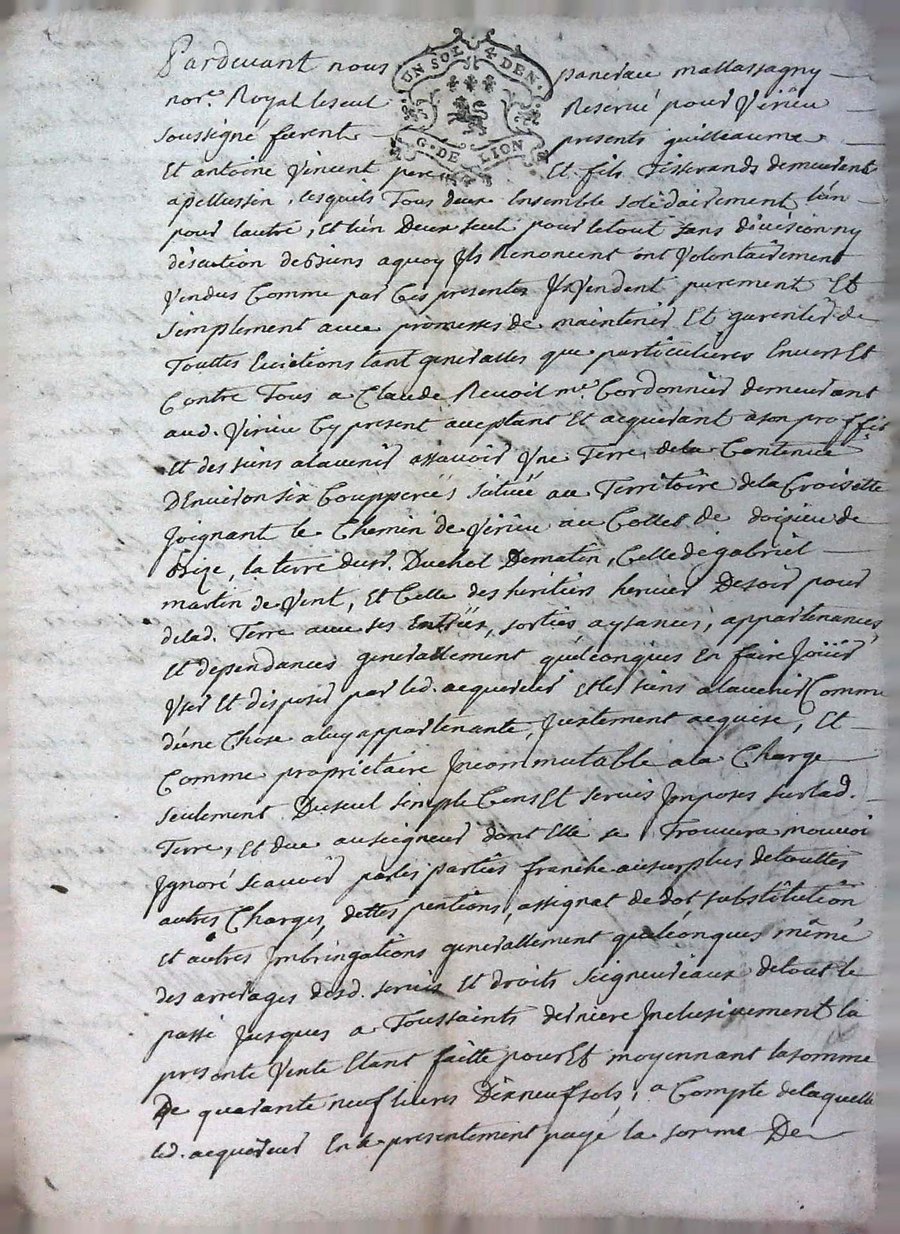 Pardevant nous UN SOL 4 DEN. pancrace mallassagny
nore. Royal le seul G. DE LION Reservé pour Virieu
soussigné furent presents guilleaume
Et antoine Vincent pere Et fils Tisserands demeurants
a pellussin, lesquels Tous deux Ensemble solidairement l'un
pour lautre, et l'un Deux seul pour letout sans division ny
discution de biens aquoy Ils Renoncent ont Volontairement
Vendus Comme par Ces presentes Ils Vendent purement Et
simplement avec promesses de maintenir Et garentir de
Touttes Evictions tant generalles que particulieres Envers Et
Contre Tous a Claude Revoil me. Cordonnier demeurant
aud. Virieu Cy present acceptant Et acquerant a son proffit
Et des siens alavenir assavoir Une Terre de la Contenue
D'Environ six Coupperées situëe au Territoire de la Croisette
Joignant le Chemin de Virieu au Collet de doisieu de
brize, la terre du sr. Duchol De matin, Celle de gabriel
martin de Vent, Et Celle des heritiers hervier De soir pour
delad. Terre avec ses Entrëës, sorties aysances, appartenances
Et dependances generallement quelconques En faire Joüir
User Et disposer par led. acquereur Et les siens alavenir Comme
d'une Chose a luy appartenante, Justement acquise, Et
Comme proprietaire Incommutable a la Charge
seulement Du seul simple Cens Et servis Imposés sur lad.
Terre, Et due au seigneur dont Elle se Trouvera mouvoir
Ignoré scavoir par les parties franche au surplus de touttes
autres Charges, dettes pentions, assignat de dot substitution
Et autres Imbringations generallement quelconques même
des arrerages desd. servis Et droits seigneuriaux de tout le
passé Jusques a Toussaints derniere Inclusivement la
presente Vente Etant faitte pour Et moyennant la somme
De quarante neuf livres Dix neuf sols, a Compte de laquelle
led. acquereur En a presentement payé la somme De